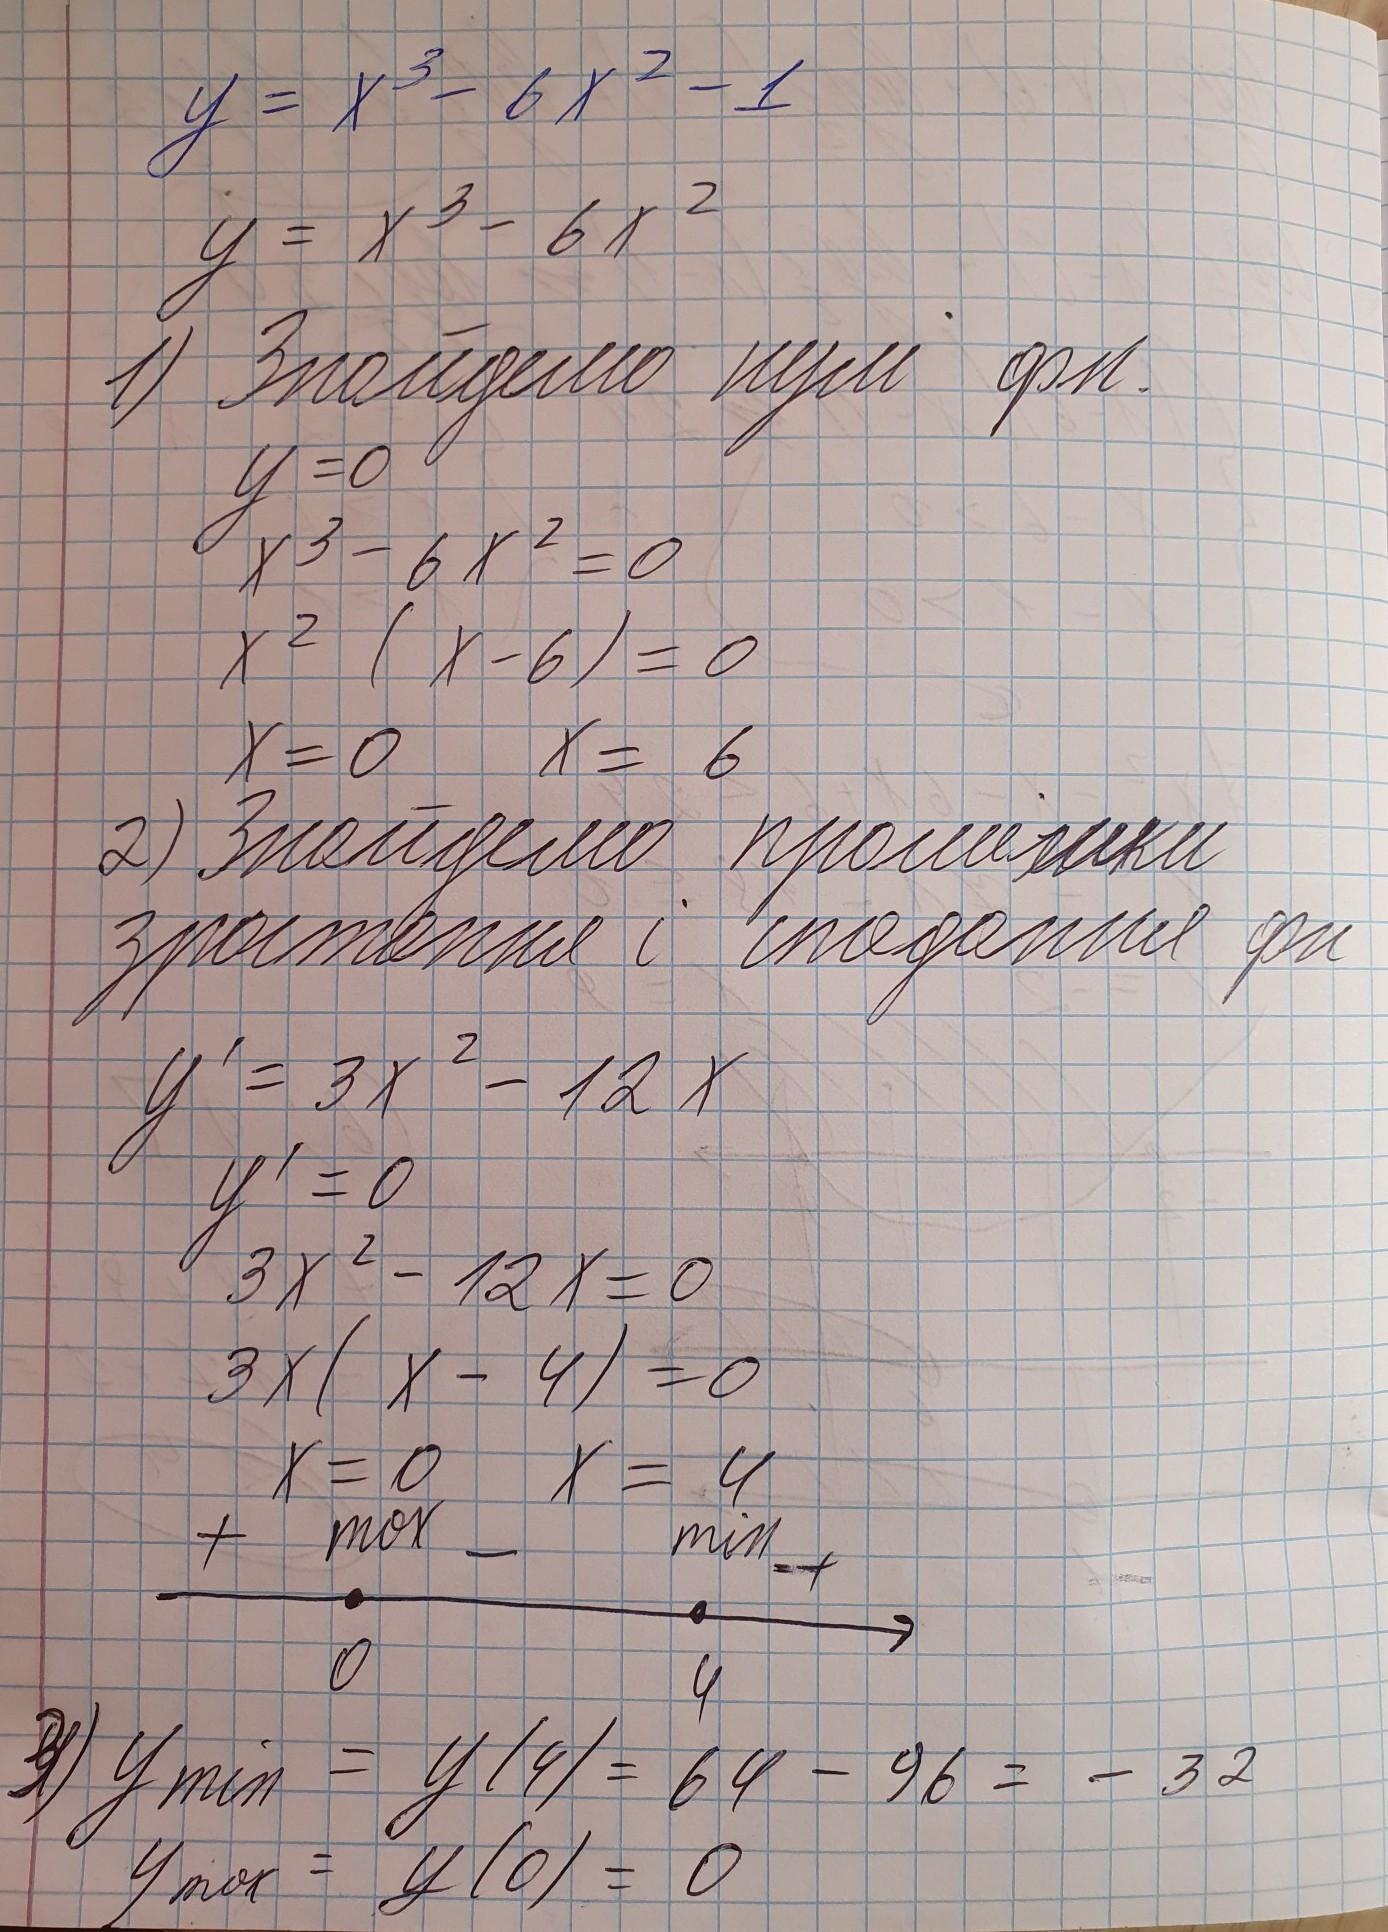 y = x³ - 6x² - 1
y = x³ - 6x²
1) Знайдемо нулі фн.
y = 0
x³ - 6x² = 0
x² ( x - 6 ) = 0
x = 0 x = 6
2) Знайдемо проміжки
зростання і спадання фн
y' = 3x² - 12x
y' = 0
3x² - 12x = 0
3x ( x - 4 ) = 0
x = 0 x = 4
+ max - min +
0 4
3) y min = y(4) = 64 - 96 = - 32
y max = y(0) = 0